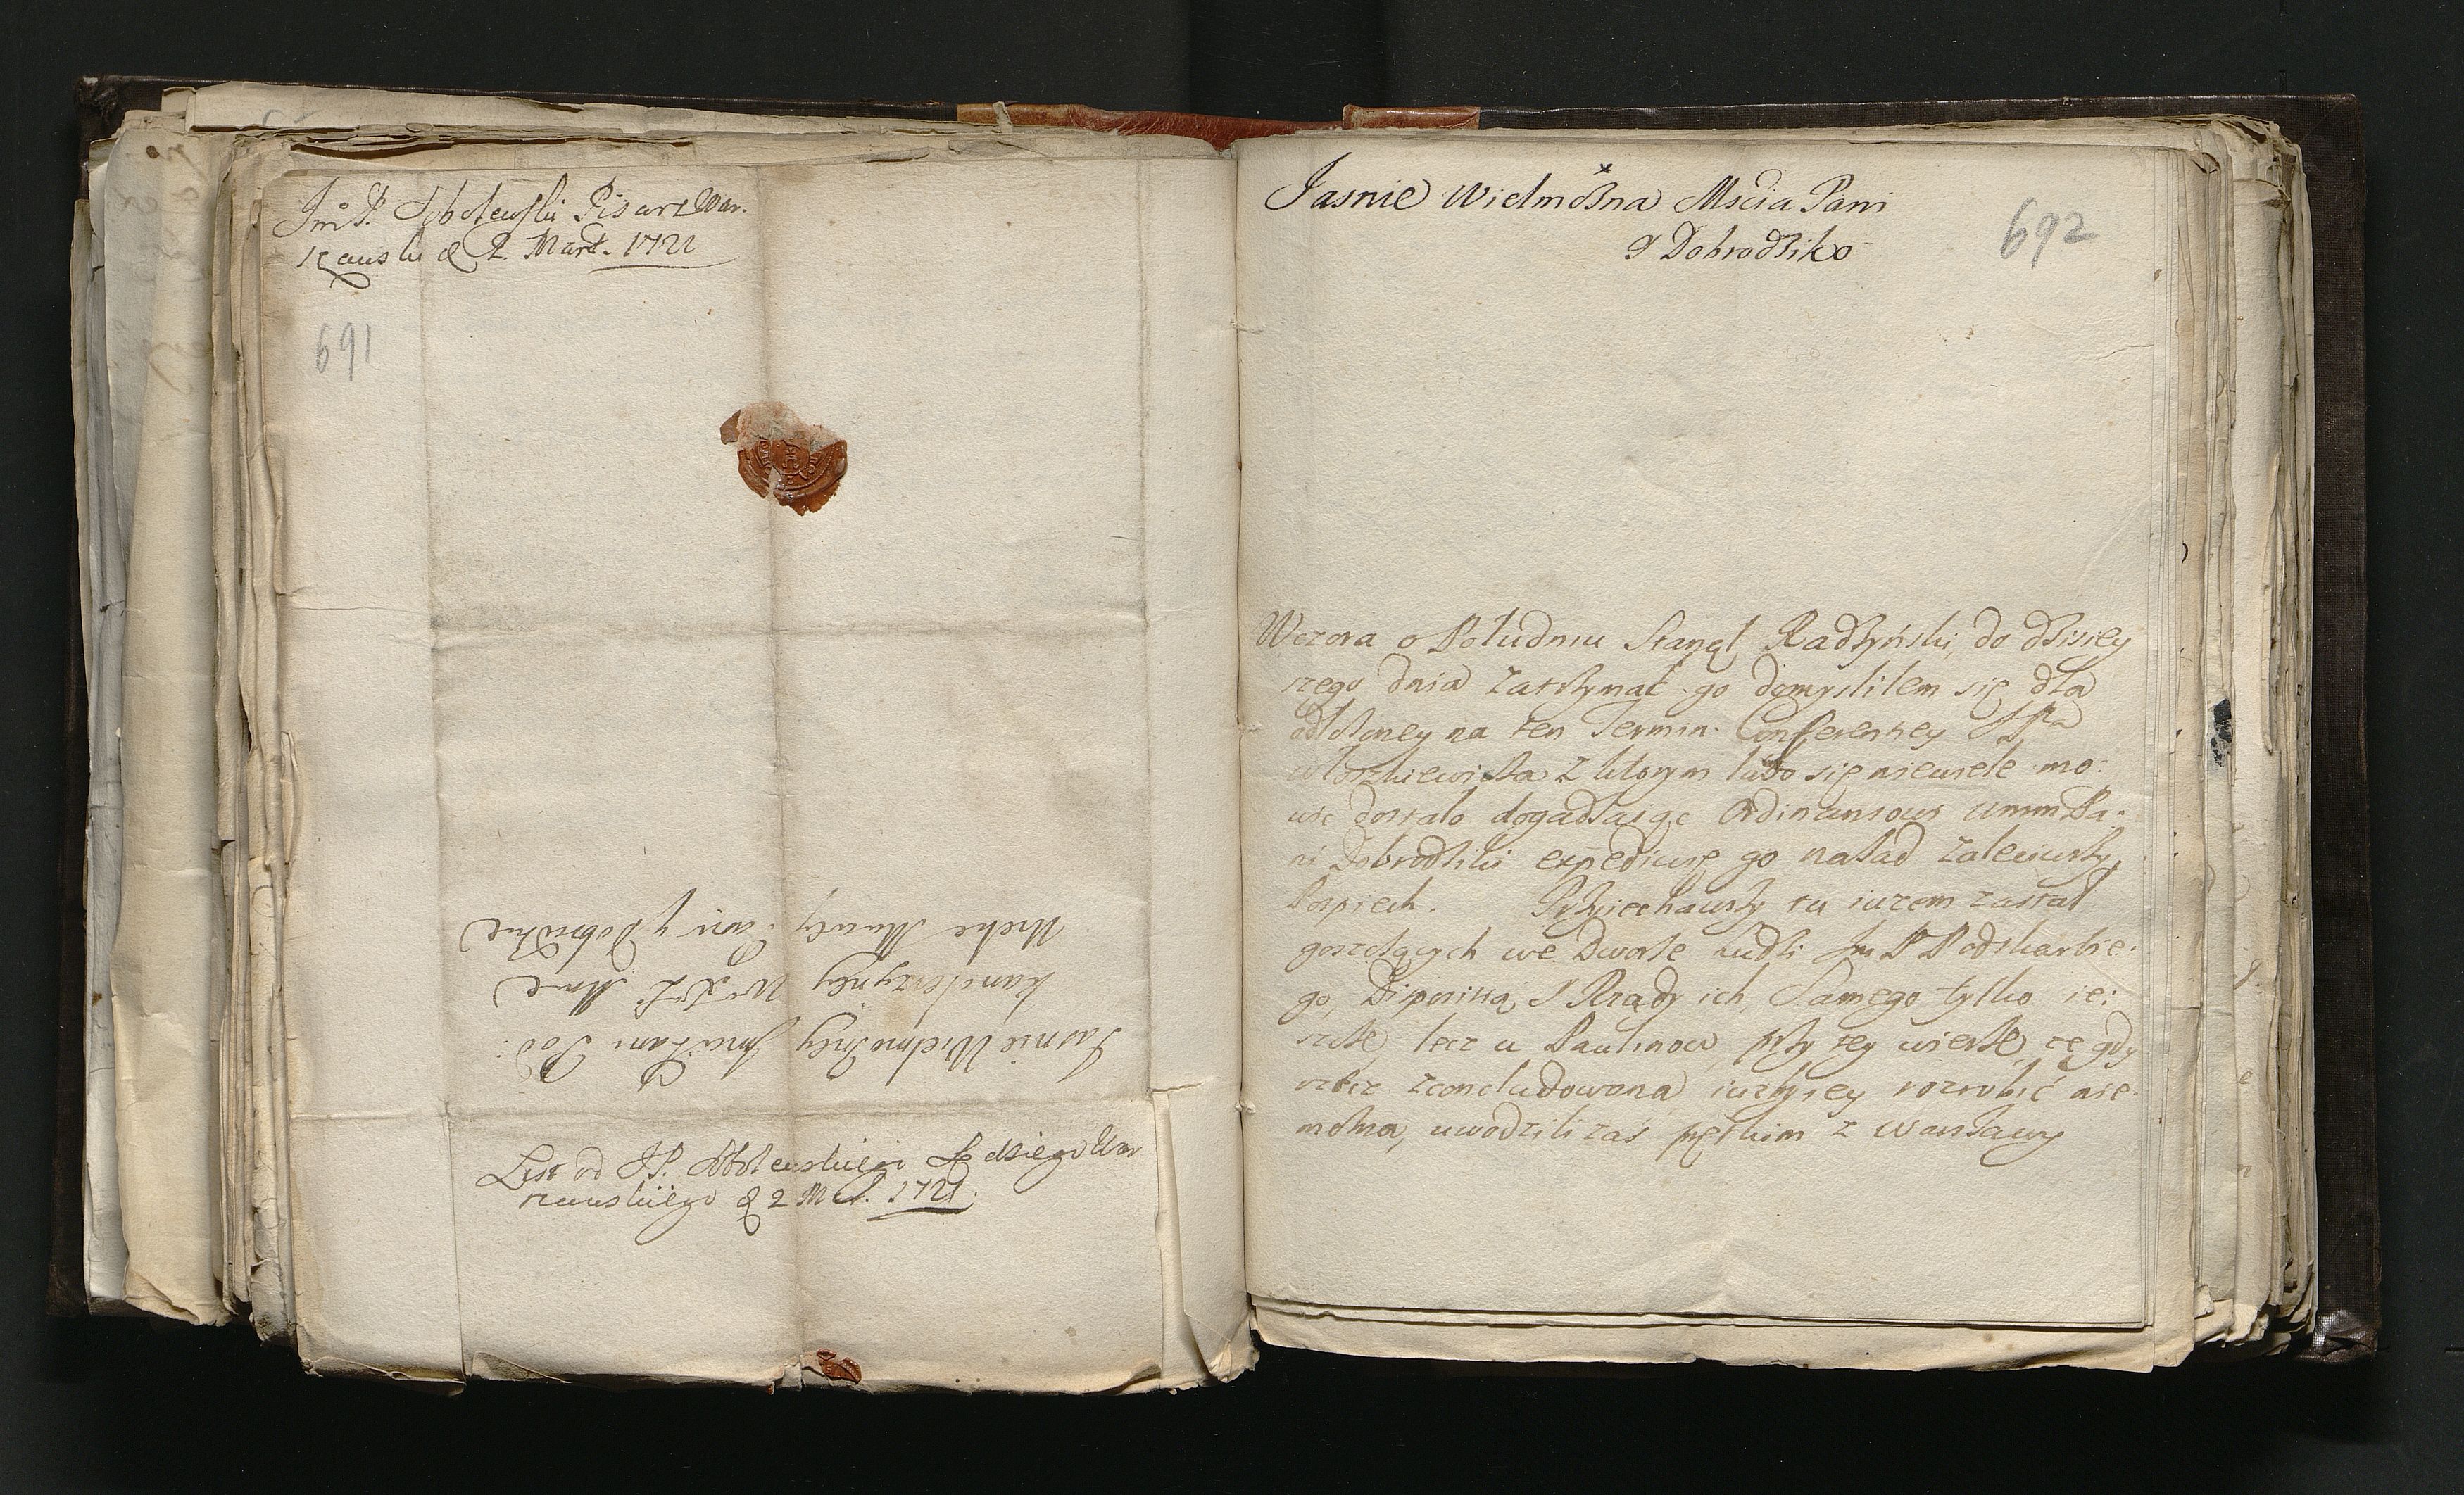 Jmo P. Sobolewski Pisarz War.
szawski d 2. Mart. 1721
691
Jasnie Wielmożney Jmci Pani Pod:
kanclerzyney W X L Mnie
Wielce Mściwey Pani y Dobrodźce
List od JP. Sobolewskiego Sędziego War
szawskiego d 2 Mar. 1721.
Jasnie Wielmożna Mscia Pani
J Dobrodziko
692
Wczora o Południu Stanął Radzyński, do dzisiey
szego dnia zatrzymać go domyslilem się dla
odłożoney na ten Termin Conferencyey
z ktorym lubo się niewiele mo:
wic dostało dogadzaiąc Ordinansowi Pa:
ni Dobrodziki expediuię go nazad zaleciwszy
Pospiech. Przyiechawszy tu iuzem zastał
goszczących we Dworze ludzi Jm P Podskarbie:
go, Disposiią, J Rządy ich, Samego tylko ie:
szcze, lecz u Paulinow przy tey wierze, że gdy
rzecz zconcludowana iuz iey rozrobić nie
można, uwodzili zas z Warszawy